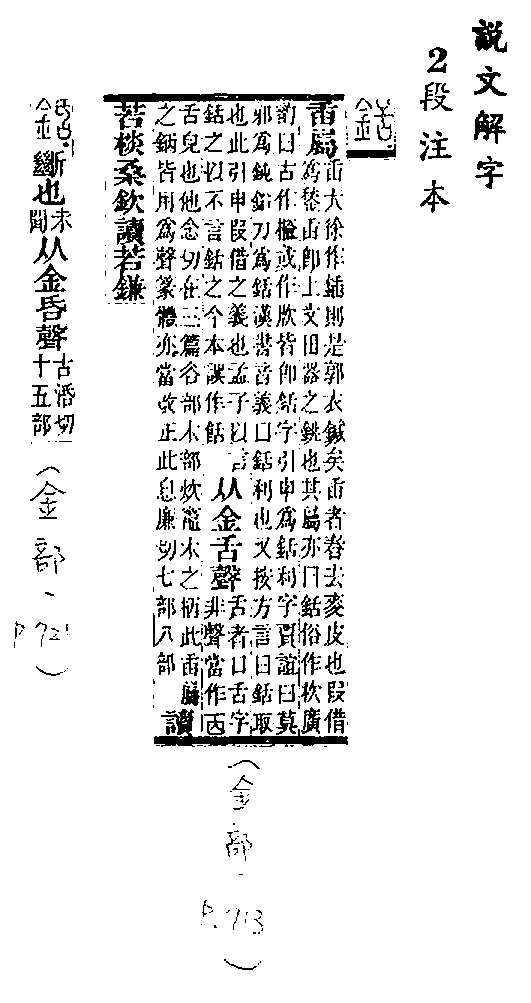 説文解字
2段注本
銛
臿屬臿大徐作鍤則是郭衣鍼矣臿者舂去麥皮也叚借
爲鍫臿卽上文田器之銚也其屬亦曰銛俗作杴廣
韵曰古作櫼或作㭠皆卽銛字引申爲銛利字賈誼曰莫
邪爲鈍鉛刀爲銛漢書音義曰銛利也又按方言曰銛取
也此引申叚借之義也孟子以言
銛之以不言銛之今本誤作餂
从金舌聲舌者口舌字
非聲當作𠀬
舌皃也他念切在三篇谷部木部㭠竈木之柄此臿屬
之銛皆用爲聲篆體亦當改正此息廉切七部八部
讀
若棪桑欽讀若鎌
(金部、
P.713)
銽
斷也未聞从金昏聲古活切十五部
(金部、
P.721)